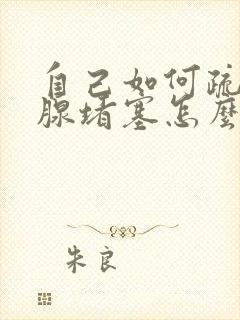 自己如何疏
腺堵塞怎麼
朱良